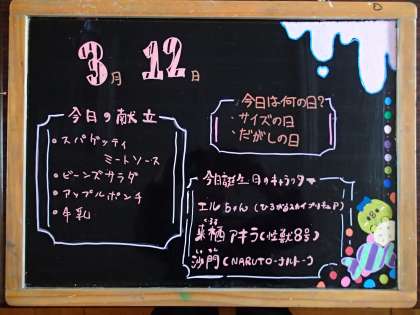 3月 12日
今日の献立
・スパゲッティ
ミートソース
・ビーンズサラダ
・アップルポンチ
・牛乳
今日は何の日?
・サイズの日
・だがしの日
今日誕生日のキャラクター
エルちゃん(ひろがるスカイプリキュア)
来栖アキラ(怪獣8号)
沙門(NARUTO-ナルト-)